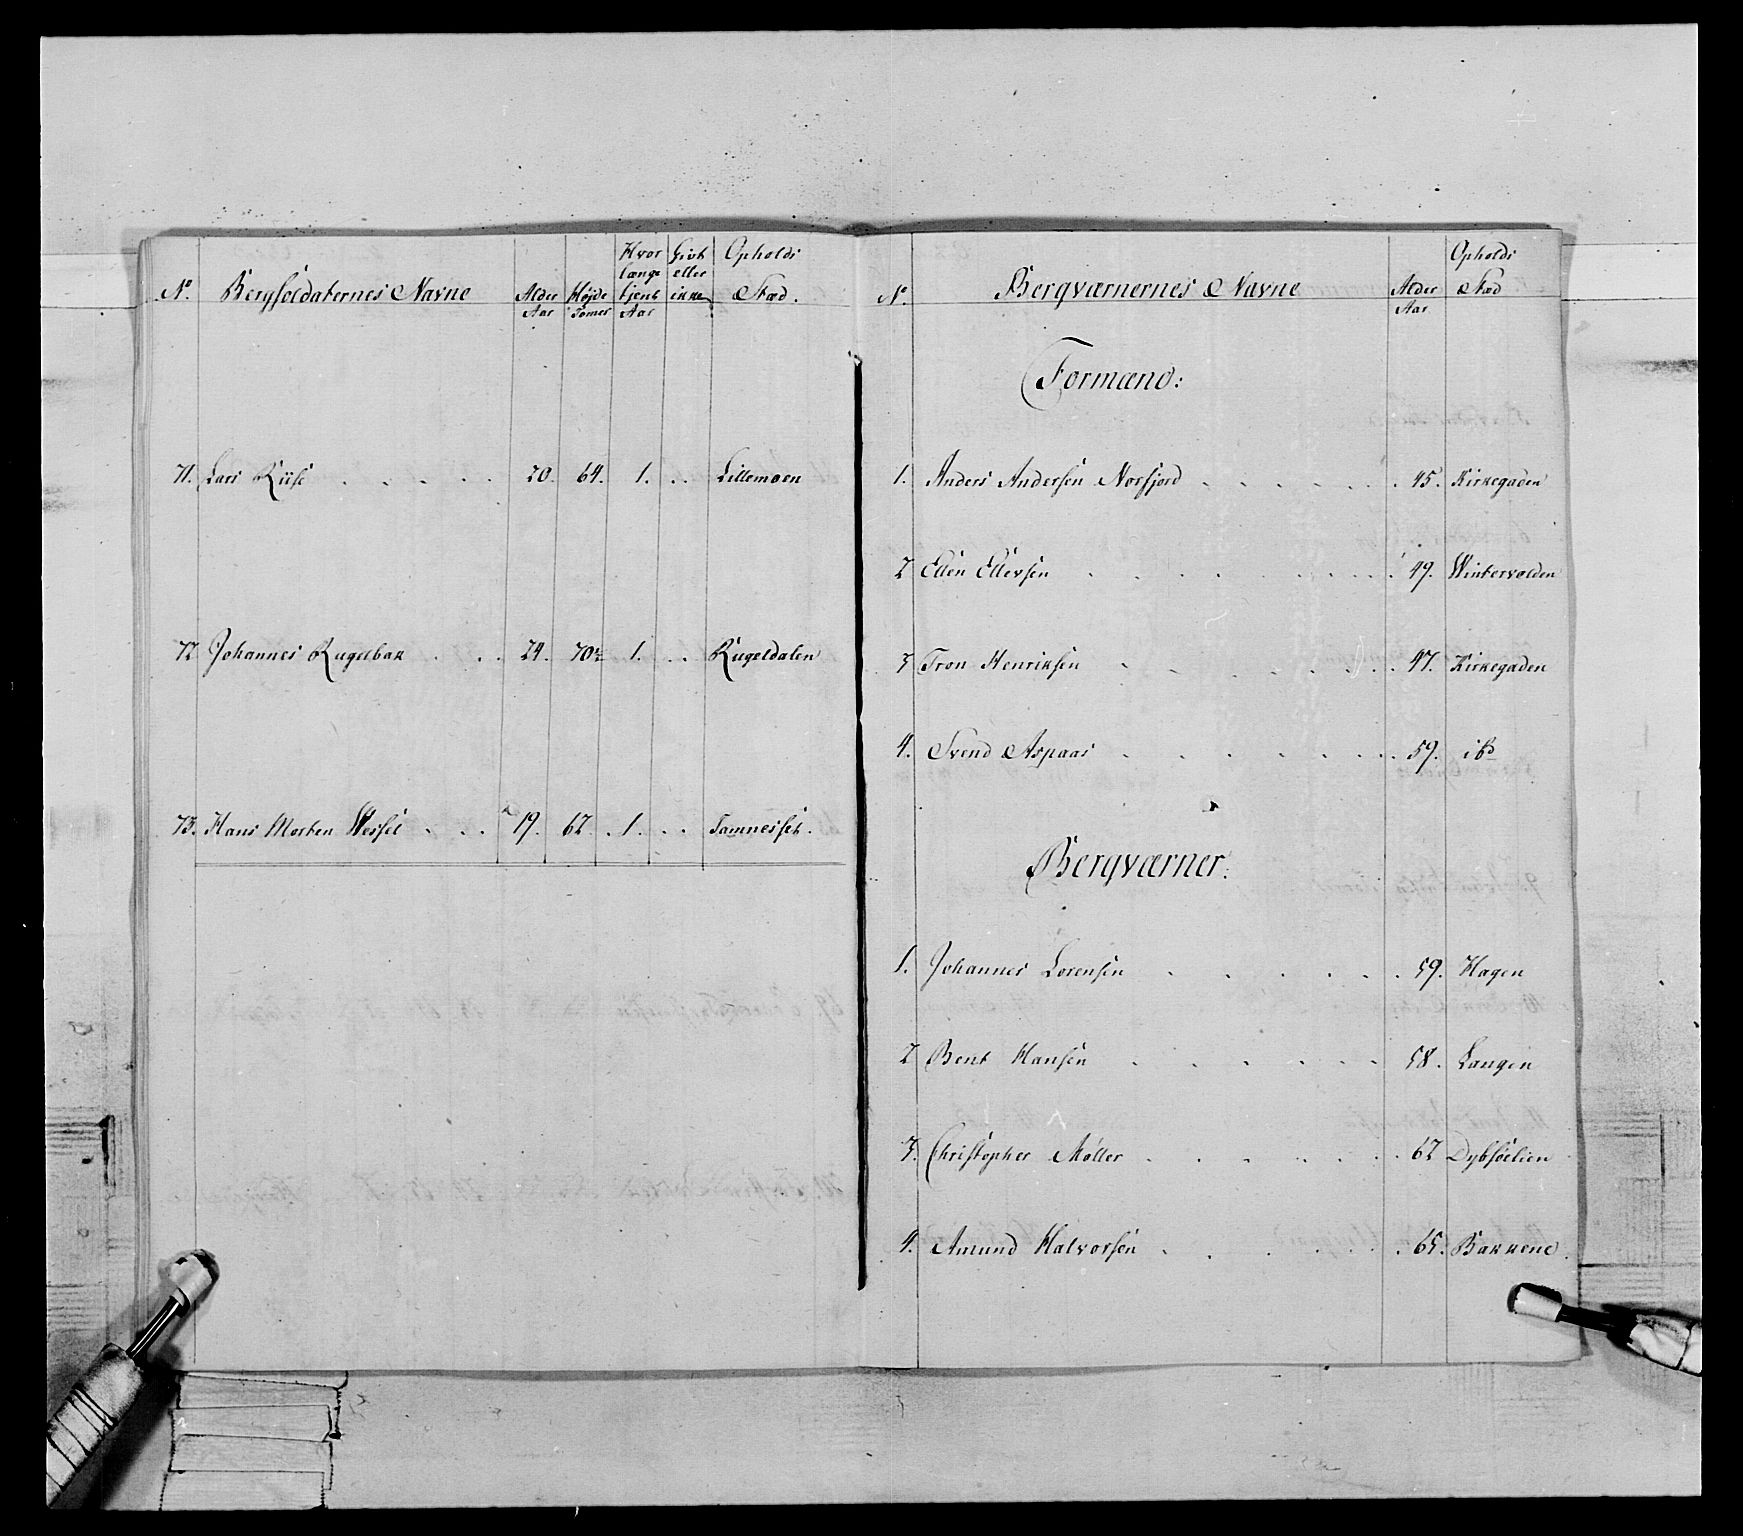 N.º Bergsoldaternes Navne Alder Aar Højde Tomer Hvor længe tjent Aar Givt eller ikke Opholds Stæd.
71. Lars Riise . . . . . 20. 64. 1. . . Lillemoen
72 Johannes Rugelbak . . . 24. 70½ 1. . . Rugeldalen
73. Hans Morten Wessel . . . 19. 62 . 1. . . Tamnesset.
N.º Bergværnernes Navne Alder Aar Opholds Stæd
Formænd:
1. Anders Andersen Norfjord . . . . . . . 45. Kirkegaden
2 Ellen Ellevsen . . . . . . . . 49. Wintervolden
3 Tron Henriksen . . . . . . . 47. Kirkegaden
4. Svend Aspaas . . . . . . . 59. ibd
Bergværner:
1. Johannes Lorensen . . . . . . 59. Hagen
2 Bent Hansen . . . . . . 58. Langen
3. Christopher Møller . . . . . . 62 Dybsøelien
4. Amund Halvorsen . . . . . . 65. Bakkene.